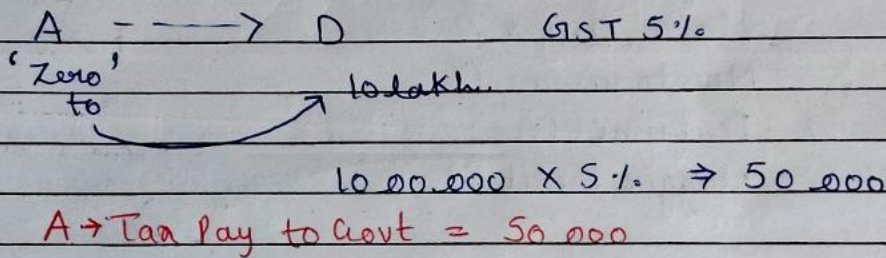 A ----> D GST 5%
'Zero'
to 10 lakh.
10 00.000 X 5% ⇒ 50 000
A → Tax Pay to Govt = 50 000